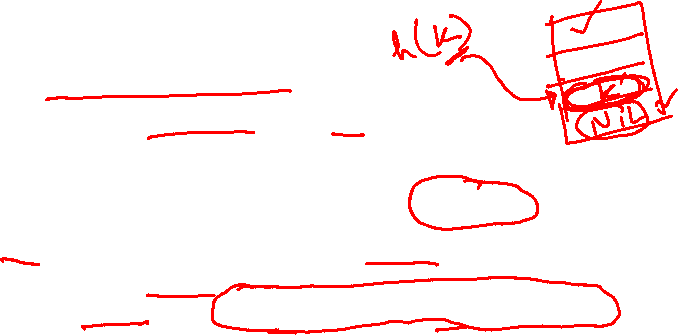 h(k)
k'
NIL